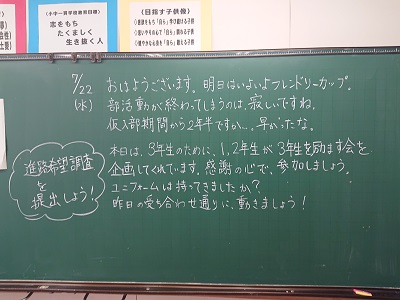 〈小中一貫学校教育目標〉
志をもち
たくましく
生き抜く人
《目指す子供像》
7/22
(水)
おはようございます。明日はいよいよフレンドリーカップ。
部活動が終わってしまうのは、寂しいですね。
仮入部期間から2年半ですか…、早かったな。
本日は、3年生のために、1,2年生が3年生を励ます会を
企画してくれています。感謝の心で、参加しましょう。
ユニフォームは持ってきましたか？
昨日の受ち合わせ通りに、動きましょう！
進路希望調査
を
提出しよう！